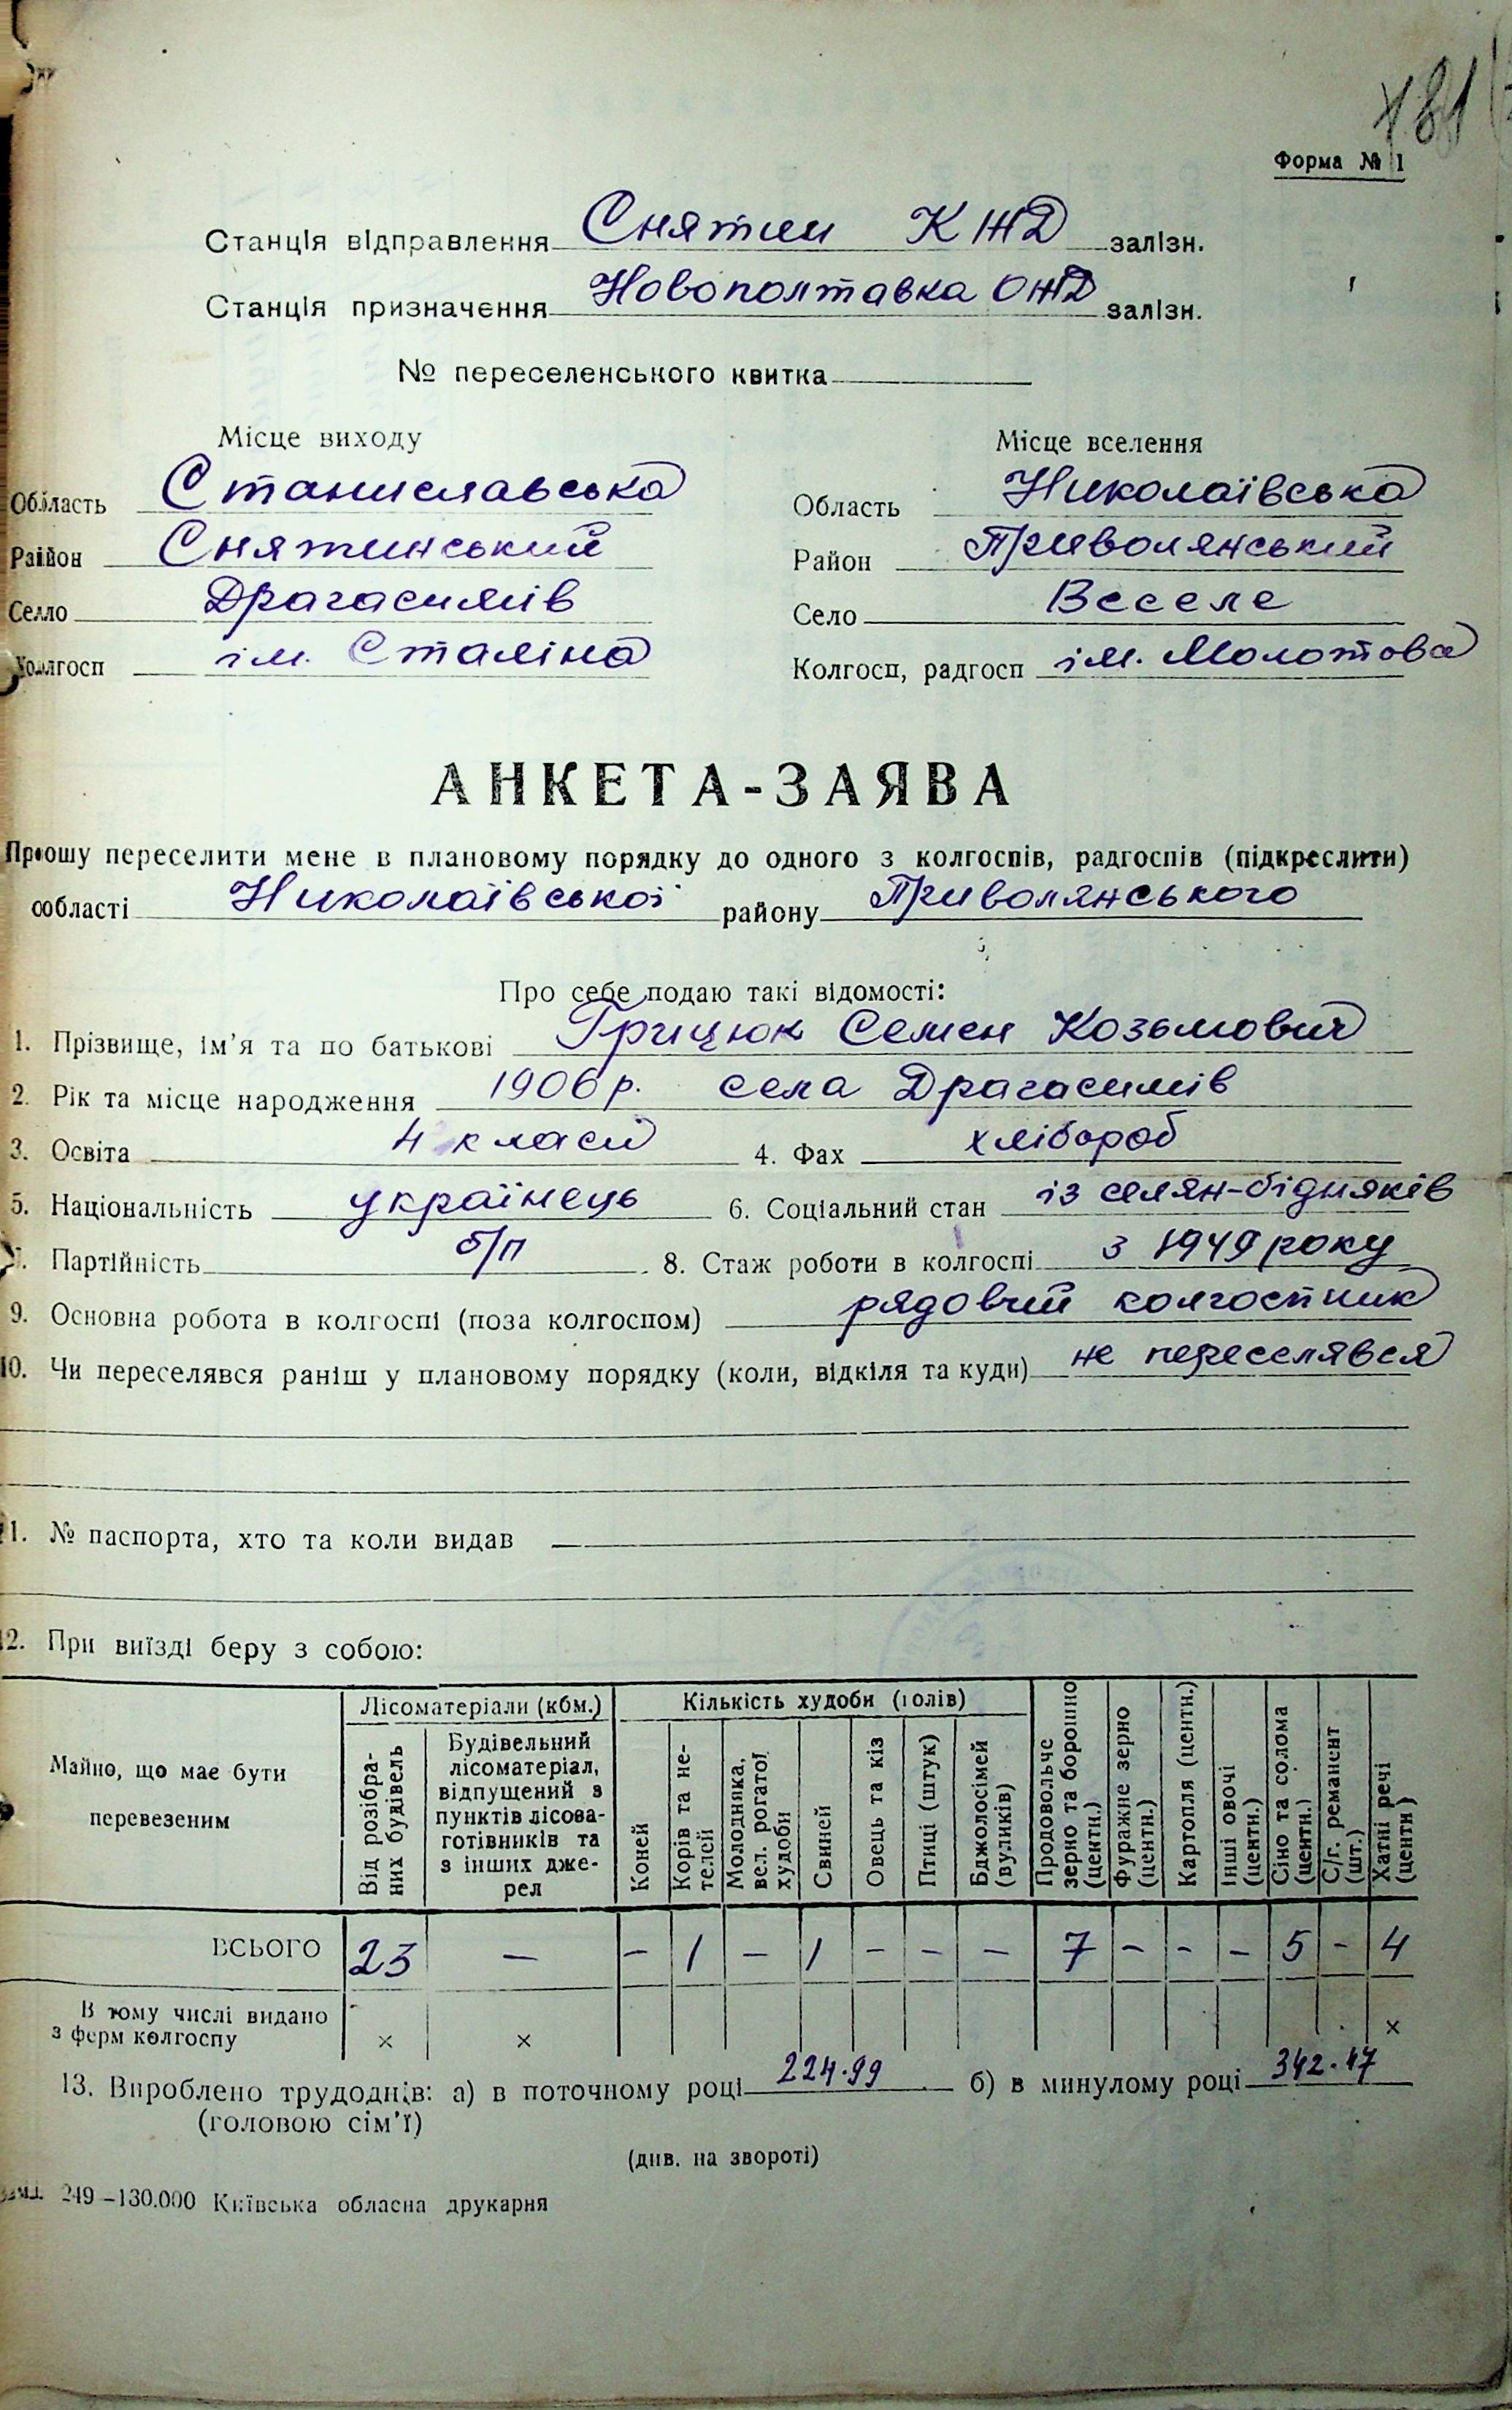 181
Форма № 1
Станція відправлення Снятин КЖД залізн.
Станція призначення Новополтавка ОЖД залізн.
№ переселенського квитка
Місце виходу
Місце вселення
Область Станиславська
Область Николаївська
Район Снятинський
Район Привольянський
Село Драгасимів
Село Веселе
Колгосп ім. Сталіна
Колгосп, радгосп ім. Молотова
АНКЕТА-ЗАЯВА
Прошу переселити мене в плановому порядку до одного з колгоспів, радгоспів (підкреслити)
області Николаївської району Привольянського
Про себе подаю такі відомості:
1. Прізвище, ім'я та по батькові Грицюк Семен Козьмович
2. Рік та місце народження 1906 р. села Драгасимів
3. Освіта 4 класи 4. Фах хлібороб
5. Національність українець 6. Соціальний стан із селян-бідняків
7. Партійність б/п 8. Стаж роботи в колгоспі з 1949 року
9. Основна робота в колгоспі (поза колгоспом) рядовий колгоспник
10. Чи переселявся раніш у плановому порядку (коли, відкіля та куди) не переселявся
11. № паспорта, хто та коли видав
12. При виїзді беру з собою:
Майно, що має бути перевезеним
Лісоматеріали (кбм.)
Кількість худоби (голів)
Від розібраних будівель
Будівельний лісоматеріал, відпущений з пунктів лісоваготівників та з інших джерел
Коней
Корів та нетелей
Молодняка, вел. рогатої худоби
Свиней
Овець та кіз
Птиці (штук)
Бджолосімей (вуликів)
Продовольче зерно та борошно (центн.)
Фуражне зерно (центн.)
Картопля (центн.)
Інші овочі (центн.)
Сіно та солома (центн.)
С/г. реманент (шт.)
Хатні речі (центн)
ВСЬОГО 23 — – 1 – 1 – – – 7 – – – 5 – 4
В тому числі видано з ферм колгоспу × × ×
13. Вироблено трудоднів: а) в поточному році 224.99 б) в минулому році 342.47
(головою сім'ї)
(див. на звороті)
249–130.000 Київська обласна друкарня